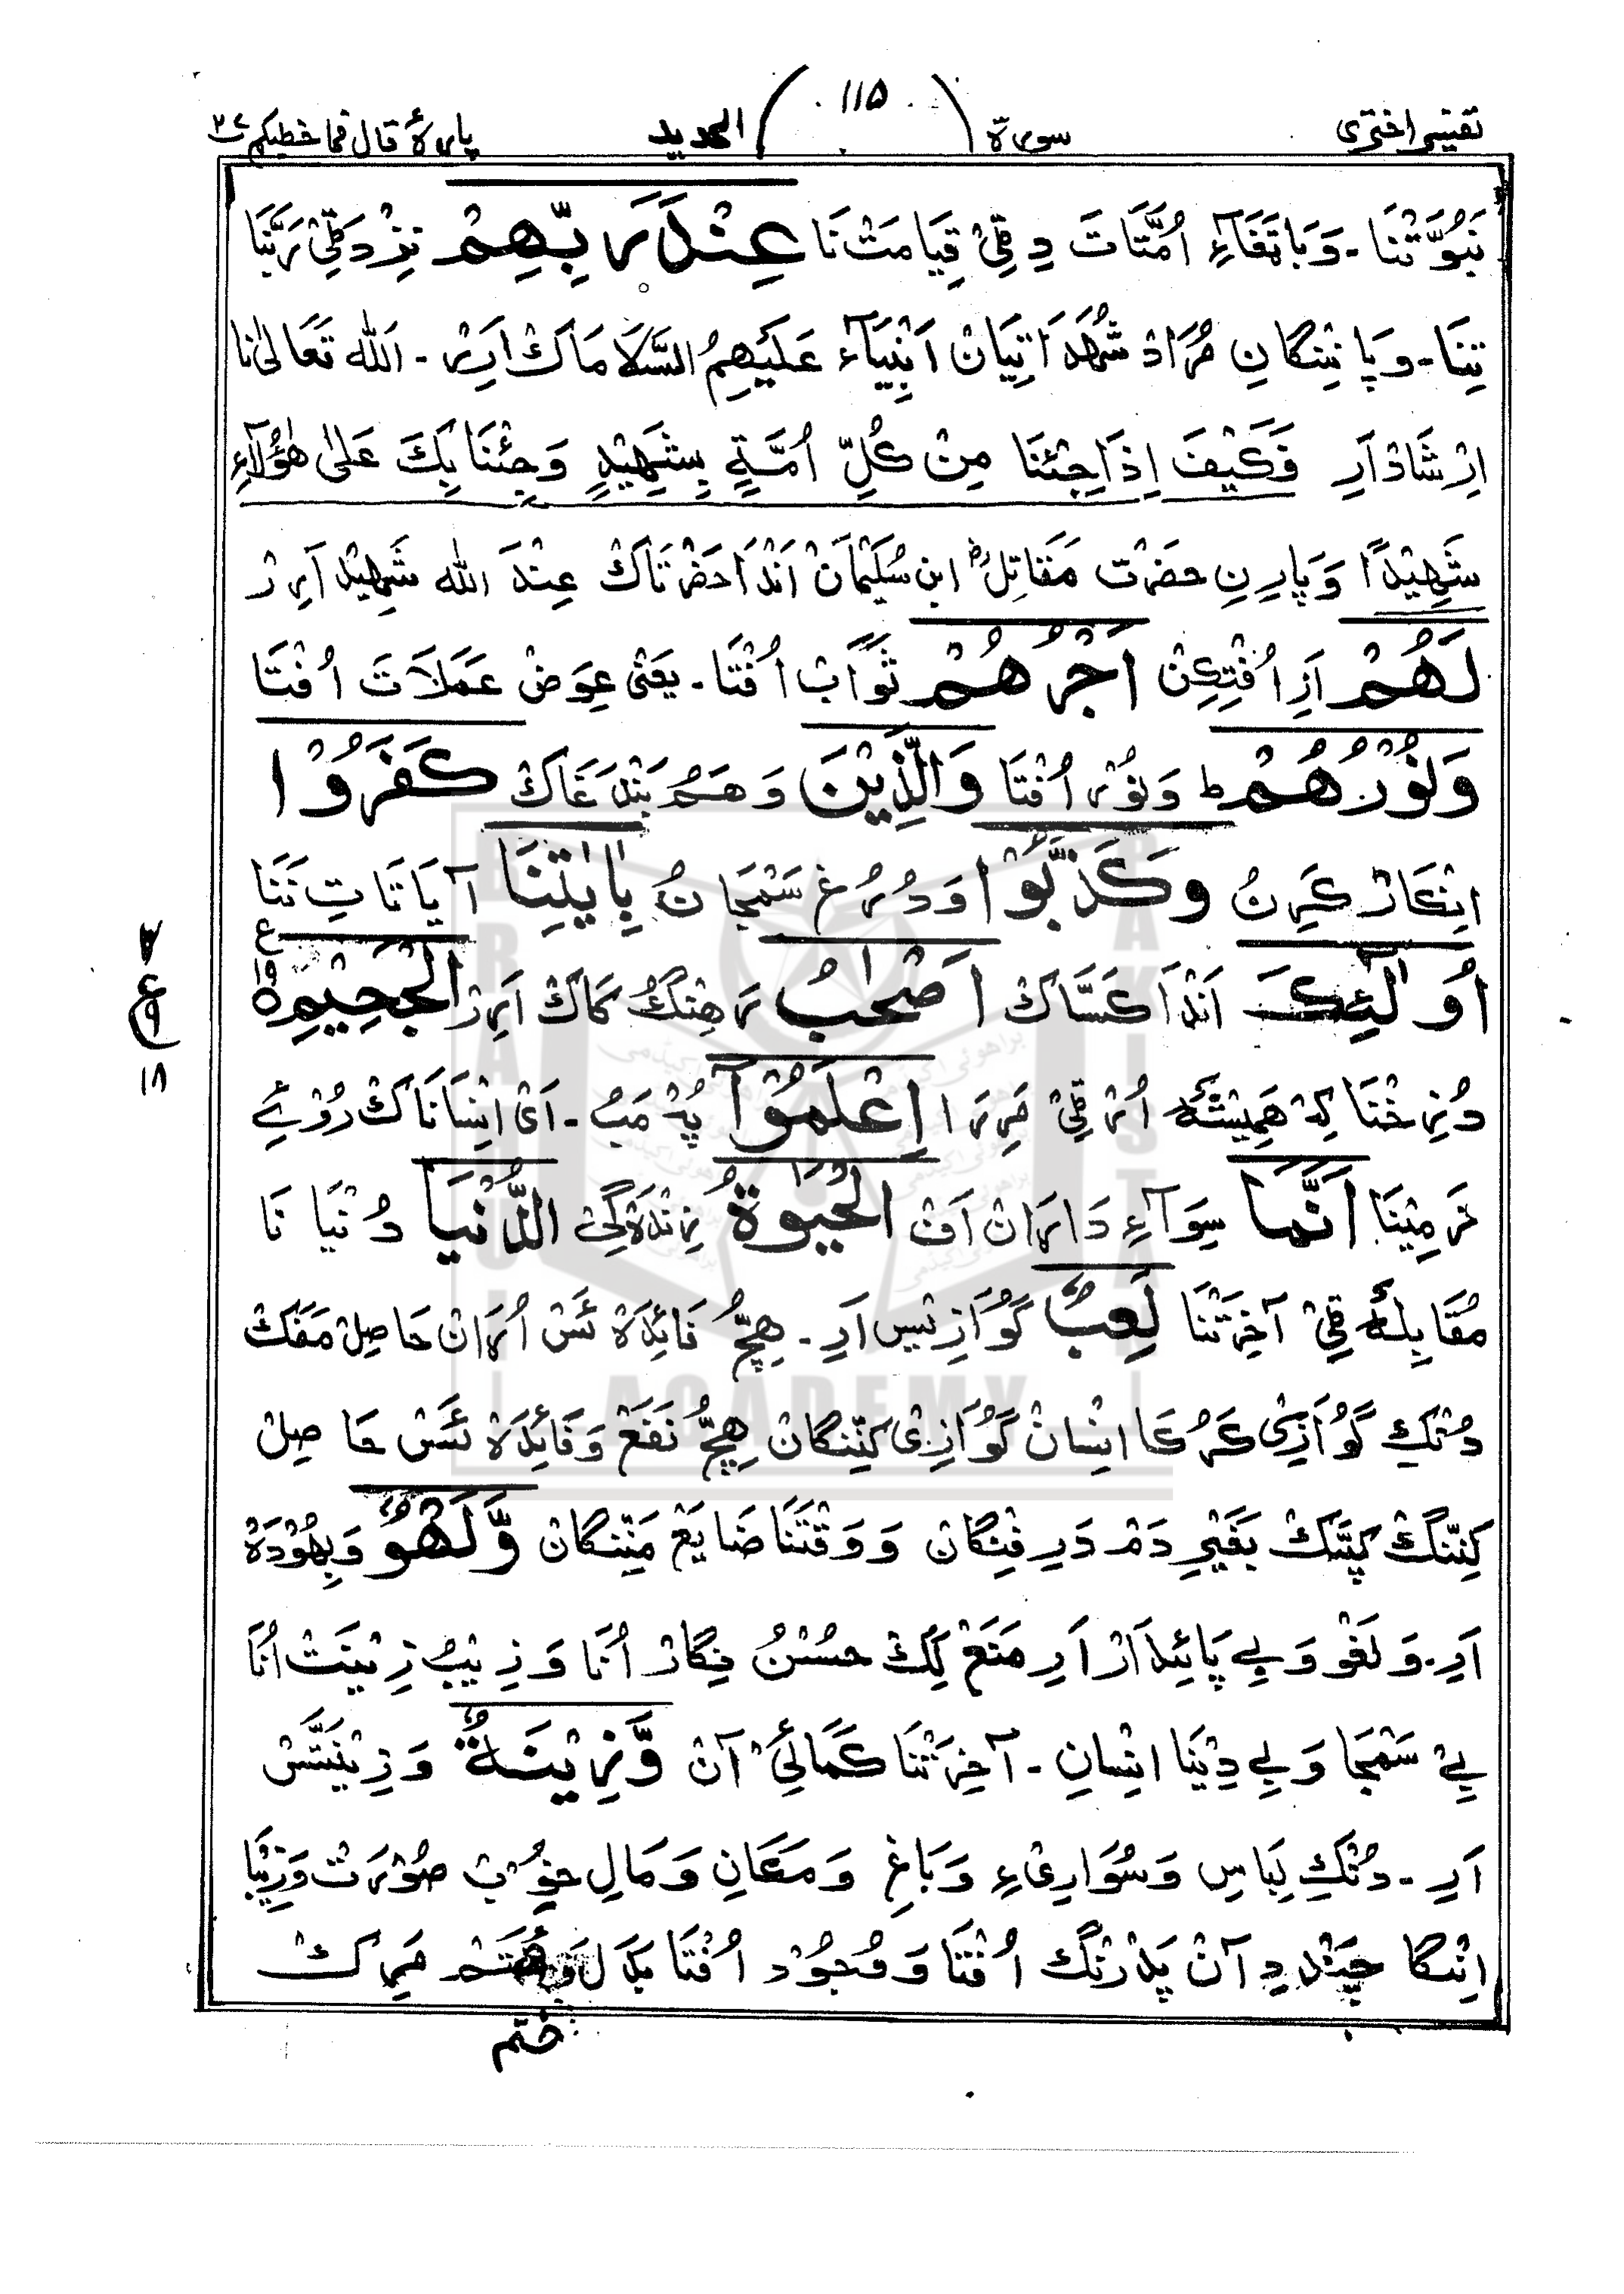 تفسیر اختری سورة (۱۱۵) الحدید پارۀ قال فما خطبکم ۲۷
نَبُوَّتْنَا ۔ وَبَا تَقَاءِ اُمَّتَاتَ دِ قِیْ قِیَامَتْ نَا عِنْدَ رَبِّهِمْ نِزْدَ کِیْ رَبَّنَا
تِنَا ۔ وَپَا نِنْگانِ مُرَادْ شُهَدَاتِیَانْ اَنْبِیَآء عَلَیهِمُ السَّلَا مَاکْ اَرِرْ ۔ اَللّٰه تَعَالیٰ نا
اِرْشَادْ اَرِ فَکَیْفَ اِذَا جِئْنَا مِنْ کُلِّ اُمَّةٍ بِشَهِیْدٍ وَجِئْنَا بِکَ عَلیٰ هٰؤُلَآءِ
شَهِیْدًا وَپَارِنِ حضرَت مَقَاتِلْ ابن سُلَیْمَانْ اَنْدَا حَضرتَاکْ عِنْدَ اللّٰه شَهِیْد اَرِرْ
لَهُمْ اَرِ اُفْتِکِنْ اَجْرُهُمْ ثَوَابْ اُفْتَا ۔ یَعْنی عِوَضْ عَمَلَاتَ اُفْتَا
وَنُوْرُهُمْ ط وَنُوْر اُفْتَا وَالَّذِیْنَ وَهَمُ بَنْدَغَاکْ کَفَرُوْا
اِنْکَارْ کَرِنُ وَکَذَّبُوْا وَدُرُغ سَمْجَانُ بِاٰیٰتِنَا آیَاتَاتِ نَنَا
اُولٰٓئِکَ اَنْدَا کَسَّاکْ اَصْحٰبُ رَهِنْگُ کَاکْ اَرِرْ الْجَحِیْمِ ۱۹ ع
دُزِخْنَا کِهْ هَمِیْشَه اُرْقِیْ مَرِرَ اِعْلَمُوْآ پُهْ مَبُ ۔ اَیْ اِنْسَانَاکْ رُوْئے
زَمِیْنَا اَنَّمَا سِوَآءِ دَارَانْ اَفْ الْحَیٰوةُ زِنْدَگِیْ الدُّنْیَا دُنْیَا نَا
مُقَابِلَه قِیْ آخِرَتْنَا لَعِبٌ گُوَازِیس اَرِ ۔ هِچُّ فَائِدَهْ ئَسْ اُرَانْ حَاصِلْ مَفَکْ
دُنْکِ گُوَازِیْ کَرُکَا اِنْسَانْ گُوَازِیْ کَنِّنْگانْ هِچُّ نَفَعْ وَفَائِدَهْ ئَسْ حَا صِلْ
کِنِّنگْ کِپَّکْ بَغَیْرِ دَمْ دَرِ فِنْگانْ وَ وَقْتَنَا ضَایَعْ مَنِّنگانْ وَّلَهْوٌ وَبِهُوْدَهْ
اَرِ ۔ وَلَغْو وَبے پَائیدَارْ اَرِ مَنَعْ لِکْ حُسْنُ نِکَارْ اُنَا وَ زِیْبُ زِیْنَتْ اُنَا
بے سَمْجَا وَبے دِیْنَا اِنْسانِ ۔ آخِرَتْنَا کَمَالِیْ آنْ وَّزِیْنَةٌ وَزِیْنَتَّسْ
اَرِ ۔ دُنْکِ لِبَاسِ وَسُوَارِیْءِ وَبَاغِ وَمَکَانِ وَمَالِ خُوْب صُوْرَتْ وَزِیْبَا
اِنْسکا چَنْد دِ آنْ پَدْ رَنْگ اُفْتَا وَ وُجُوْد اُفْتَا بَدَل وَ خَتَمْ مَرِرکْ
ختم
ع
۱۹
۱۸
BRAHUI ACADEMY PAKISTAN
براهوئی اکیڈمی